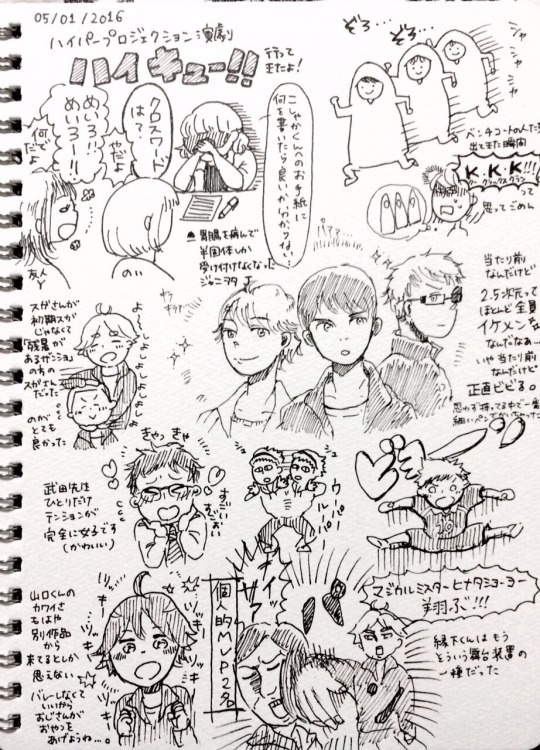 05/01/2016
ハイパープロジェクション演劇
ハイキュー!!
行って
きたよ!
ぞろ…
ぞろ…
シャ
シャ
シャ
ベンチコートの人たち
出てきた瞬間
K.K.K!!!
クー クラックス クラン
って
思ってごめん
こしゃかくんへのお手紙に
何を書いたら良いか分からない…
クロスワード
は?
やだよ
めいろ!!
めいろー!!
何でだよ
友人
Y
のい
胃腸を病んで
半固体しか
受け付けなくなった
ジャニヲタ
当たり前
なんだけど
2.5次元って
ほとんど全員
イケメンな
なんだなぁ…
いや 当たり前
なんだけど
正直ビビる。
思わず持ってる中で一番
細いペンでかいちゃった
キラ
キラ
スガさんが
初期スガ
じゃなくて
「残暑が
あるぜ」ション
の方の
スガさん
だった
のが
とても
良かった
よしよしよしよしよし
武田先生
ひとりだけ
テンションが
完全に女子です
(かわいい)
きゃっ きゃ
すごい
すごい
ウーパー
ルーパー
ビョーン
マジカルミスターヒナタショーヨー
翔ぶ!!!
縁下くんは もう
そういう舞台装置の
一種だった
山口くんの
カワイさ
もはや
別作品
から
来てるとしか
思えない
バレーしなくて
いいから
おじさんが
おやつを
あげようね…。
ツッキー
ツッキー
ツッキー
個人的MVP2名